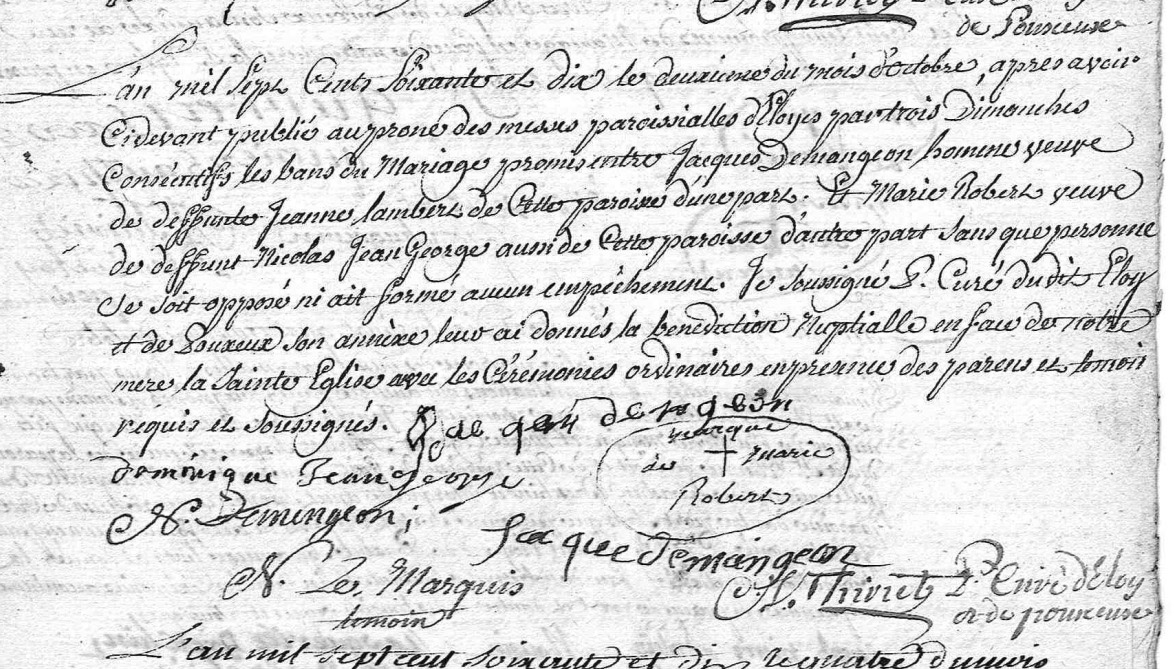 de Pouxeux
L'an mil Sept Cents Soixante et dix le deuxieme du mois d'octobre, apres avoir
Cidevant publié au prone des messes paroissialles d'Eloyes par trois Dimanches
Consécutifs les bans du Mariage promis entre Jacques Demangeon homme veuve
de deffunte Jeanne Lambert de Cette paroisse d'une part. Et Marie Robert veuve
de deffunt Nicolas JeanGeorge aussi de Cette paroisse d'autre part sans que personne
se soit opposé ni ait formé aucun empêchement. Je soussigné P. Curé dudit Eloy
et de Pouxeux son annèxe leur ai donnés la benediction Nuptialle en face de notre
mere la Sainte Eglise avec les Cérémonies ordinaires en presence des parens et temoin
réquis et soussignés.
marque
de + Marie
Robert
Dominique Jean george
N. Demengeon;
Jacque demangeon
N. Le Marquis
temoin
N. Thiriet P. Curé d'Eloy
et de pouxeux
L'an mil sept cent soixante et dix le quatre du mois